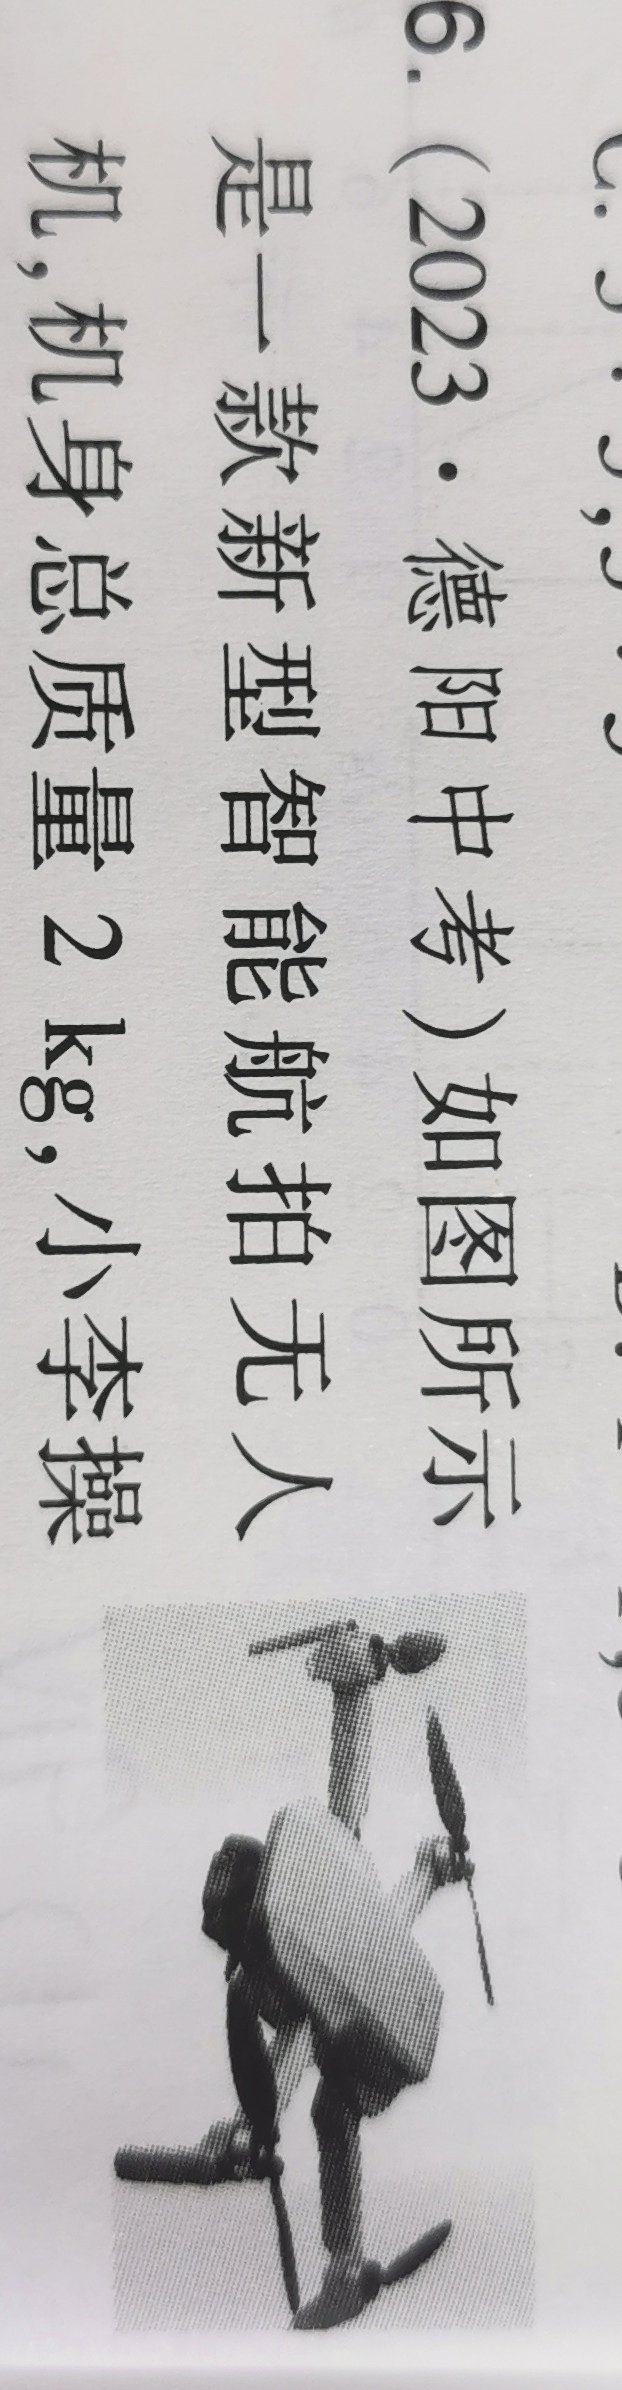 6. (2023·德阳中考)如图所示
是一款新型智能航拍无人
机,机身总质量2 kg,小李操